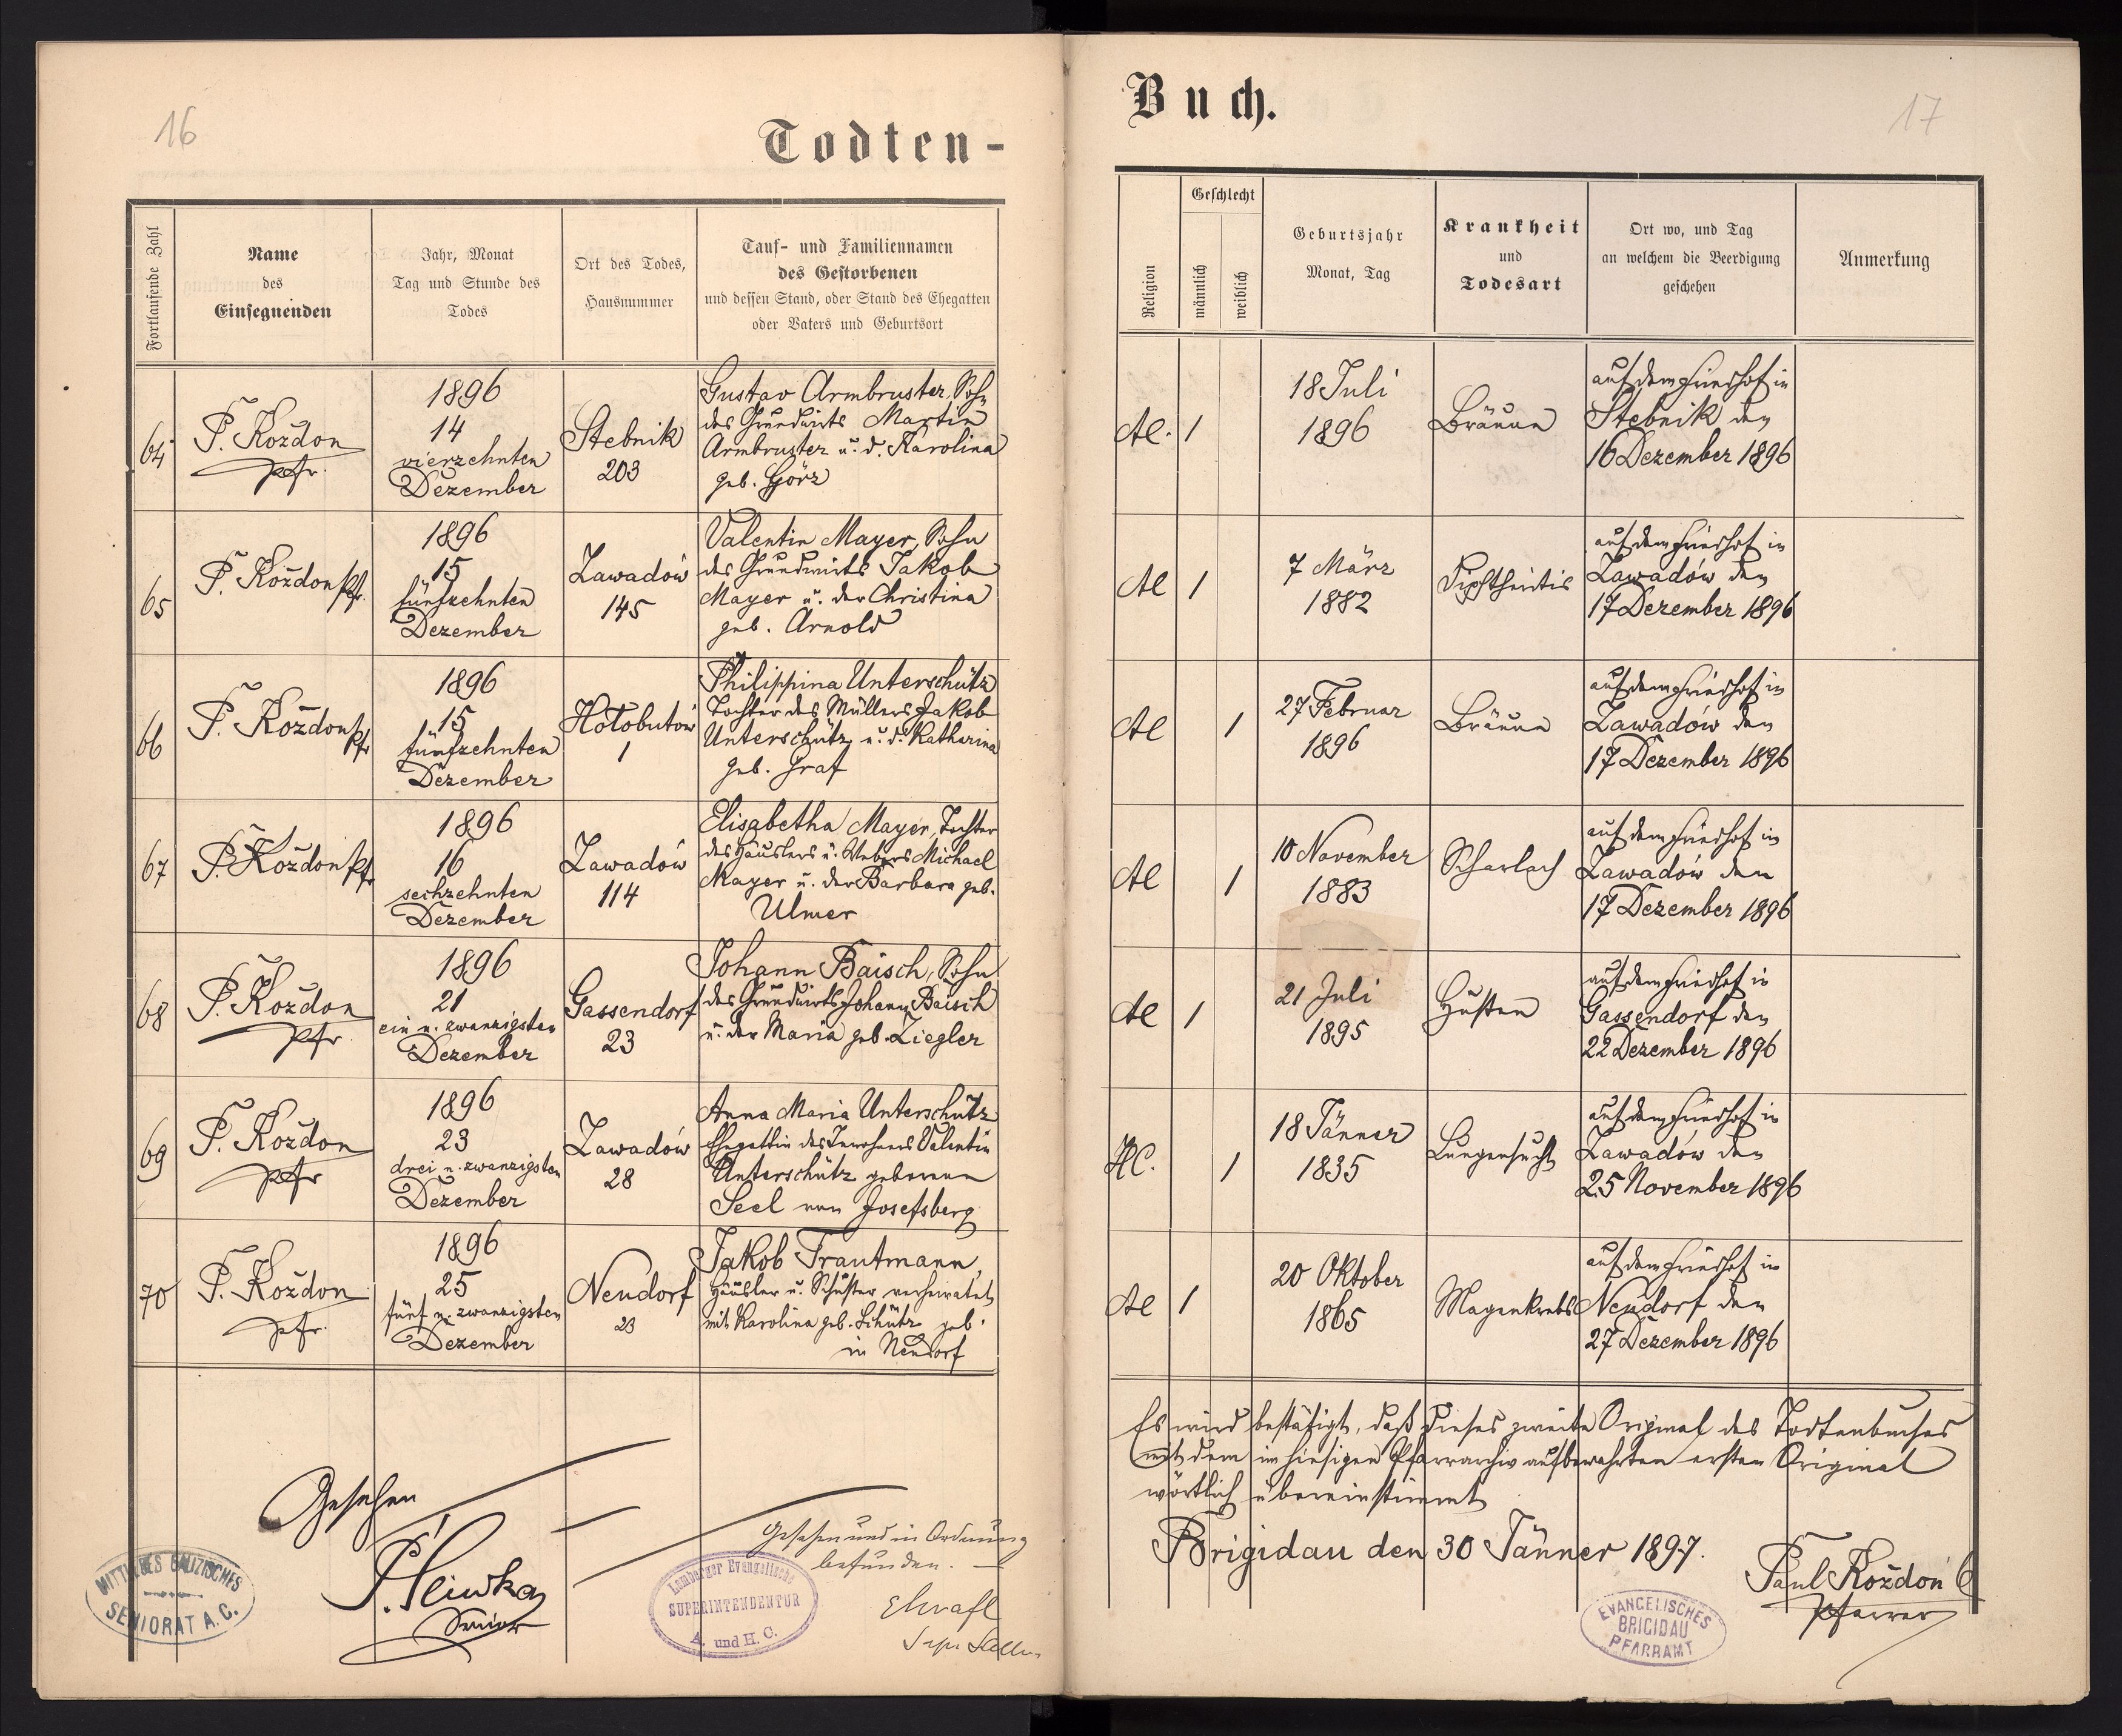 16
Todten-
Fortlaufende Zahl
Name
des
Einsegnenden
Jahr, Monat
Tag und Stunde des
Todes
Ort des Todes,
Hausnummer
Tauf- und Familiennamen
des Gestorbenen
und dessen Stand, oder Stand des Ehegatten
oder Vaters und Geburtsort
64
P. Koždon
Pfr.
1896
14
vierzehnten
Dezember
Stebnik
203
Gustav Armbruster, Sohn
des Grundwirts Martin
Armbruster u. d. Karolina
geb. Görz
65
P. Koždon Pfr.
1896
15
fünfzehnten
Dezember
Zawadów
145
Valentin Mayer, Sohn
des Grundwirts Jakob
Mayer u. der Christina
geb. Arnold
66
P. Koždon Pfr
1896
15
fünfzehnten
Dezember
Hołobutów
1
Philippina Unterschütz
Tochter des Müllers Jakob
Unterschütz u. d. Katharina
geb. Graf
67
P. Koždon Pfr
1896
16
sechzehnten
Dezember
Zawadów
114
Elisabetha Mayer, Tochter
des Häuslers u. Webers Michael
Mayer u. der Barbara geb.
Ulmer
68
P. Koždon
Pfr.
1896
21
ein u. zwanzigsten
Dezember
Gassendorf
23
Johann Baisch, Sohn
des Grundwirts Johann Baisch
u. der Maria geb. Ziegler
69
P. Koždon
Pfr
1896
23
drei u. zwanzigsten
Dezember
Zawadów
28
Anna Maria Unterschütz
Ehegattin des Inwohners Valentin
Unterschütz geborene
Seel von Josefsberg
70
P. Koždon
Pfr.
1896
25
fünf u. zwanzigsten
Dezember
Neudorf
23
Jakob Trautmann,
Häusler u. Schuster verheiratet
mit Karolina geb. Schütz geb.
in Neudorf
Gesehen
Senior
MITTLERES GALIZISCHES
SENIORAT A. C.
Gesehen und in Ordnung
befunden.
Lemberger Evangelische
SUPERINTENDENTUR
A. und H. C.
Buch.
17
Religion
Geschlecht
männlich
weiblich
Geburtsjahr
Monat, Tag
Krankheit
und
Todesart
Ort wo, und Tag
an welchem die Beerdigung
geschehen
Anmerkung
AC.
1
18 Juli
1896
Bräune
auf dem Friedhof in
Stebnik den
16 Dezember 1896
AC
1
7 März
1882
Diphtheritis
auf dem Friedhof in
Zawadów den
17 Dezember 1896
AC
1
27 Februar
1896
Bräune
auf dem Friedhof in
Zawadów den
17 Dezember 1896
AC
1
10 November
1883
Scharlach
auf dem Friedhof in
Zawadów den
17 Dezember 1896
AC
1
21 Juli
1895
Husten
auf dem Friedhof in
Gassendorf den
22 Dezember 1896
HC.
1
18 Jänner
1835
Lungensucht
auf dem Friedhof in
Zawadów den
25 November 1896
AC
1
20 Oktober
1865
Magenkrebs
auf dem Friedhof in
Neudorf den
27 Dezember 1896
Es wird bestätigt, daß dieses zweite Original des Todtenbuches
mit dem im hiesigen Pfarrarchiv aufbewahrten ersten Original
wörtlich übereinstimmt
Brigidau den 30 Jänner 1897.
Paul Koždon
Pfarrer
EVANGELISCHES
BRIGIDAU
PFARRAMT